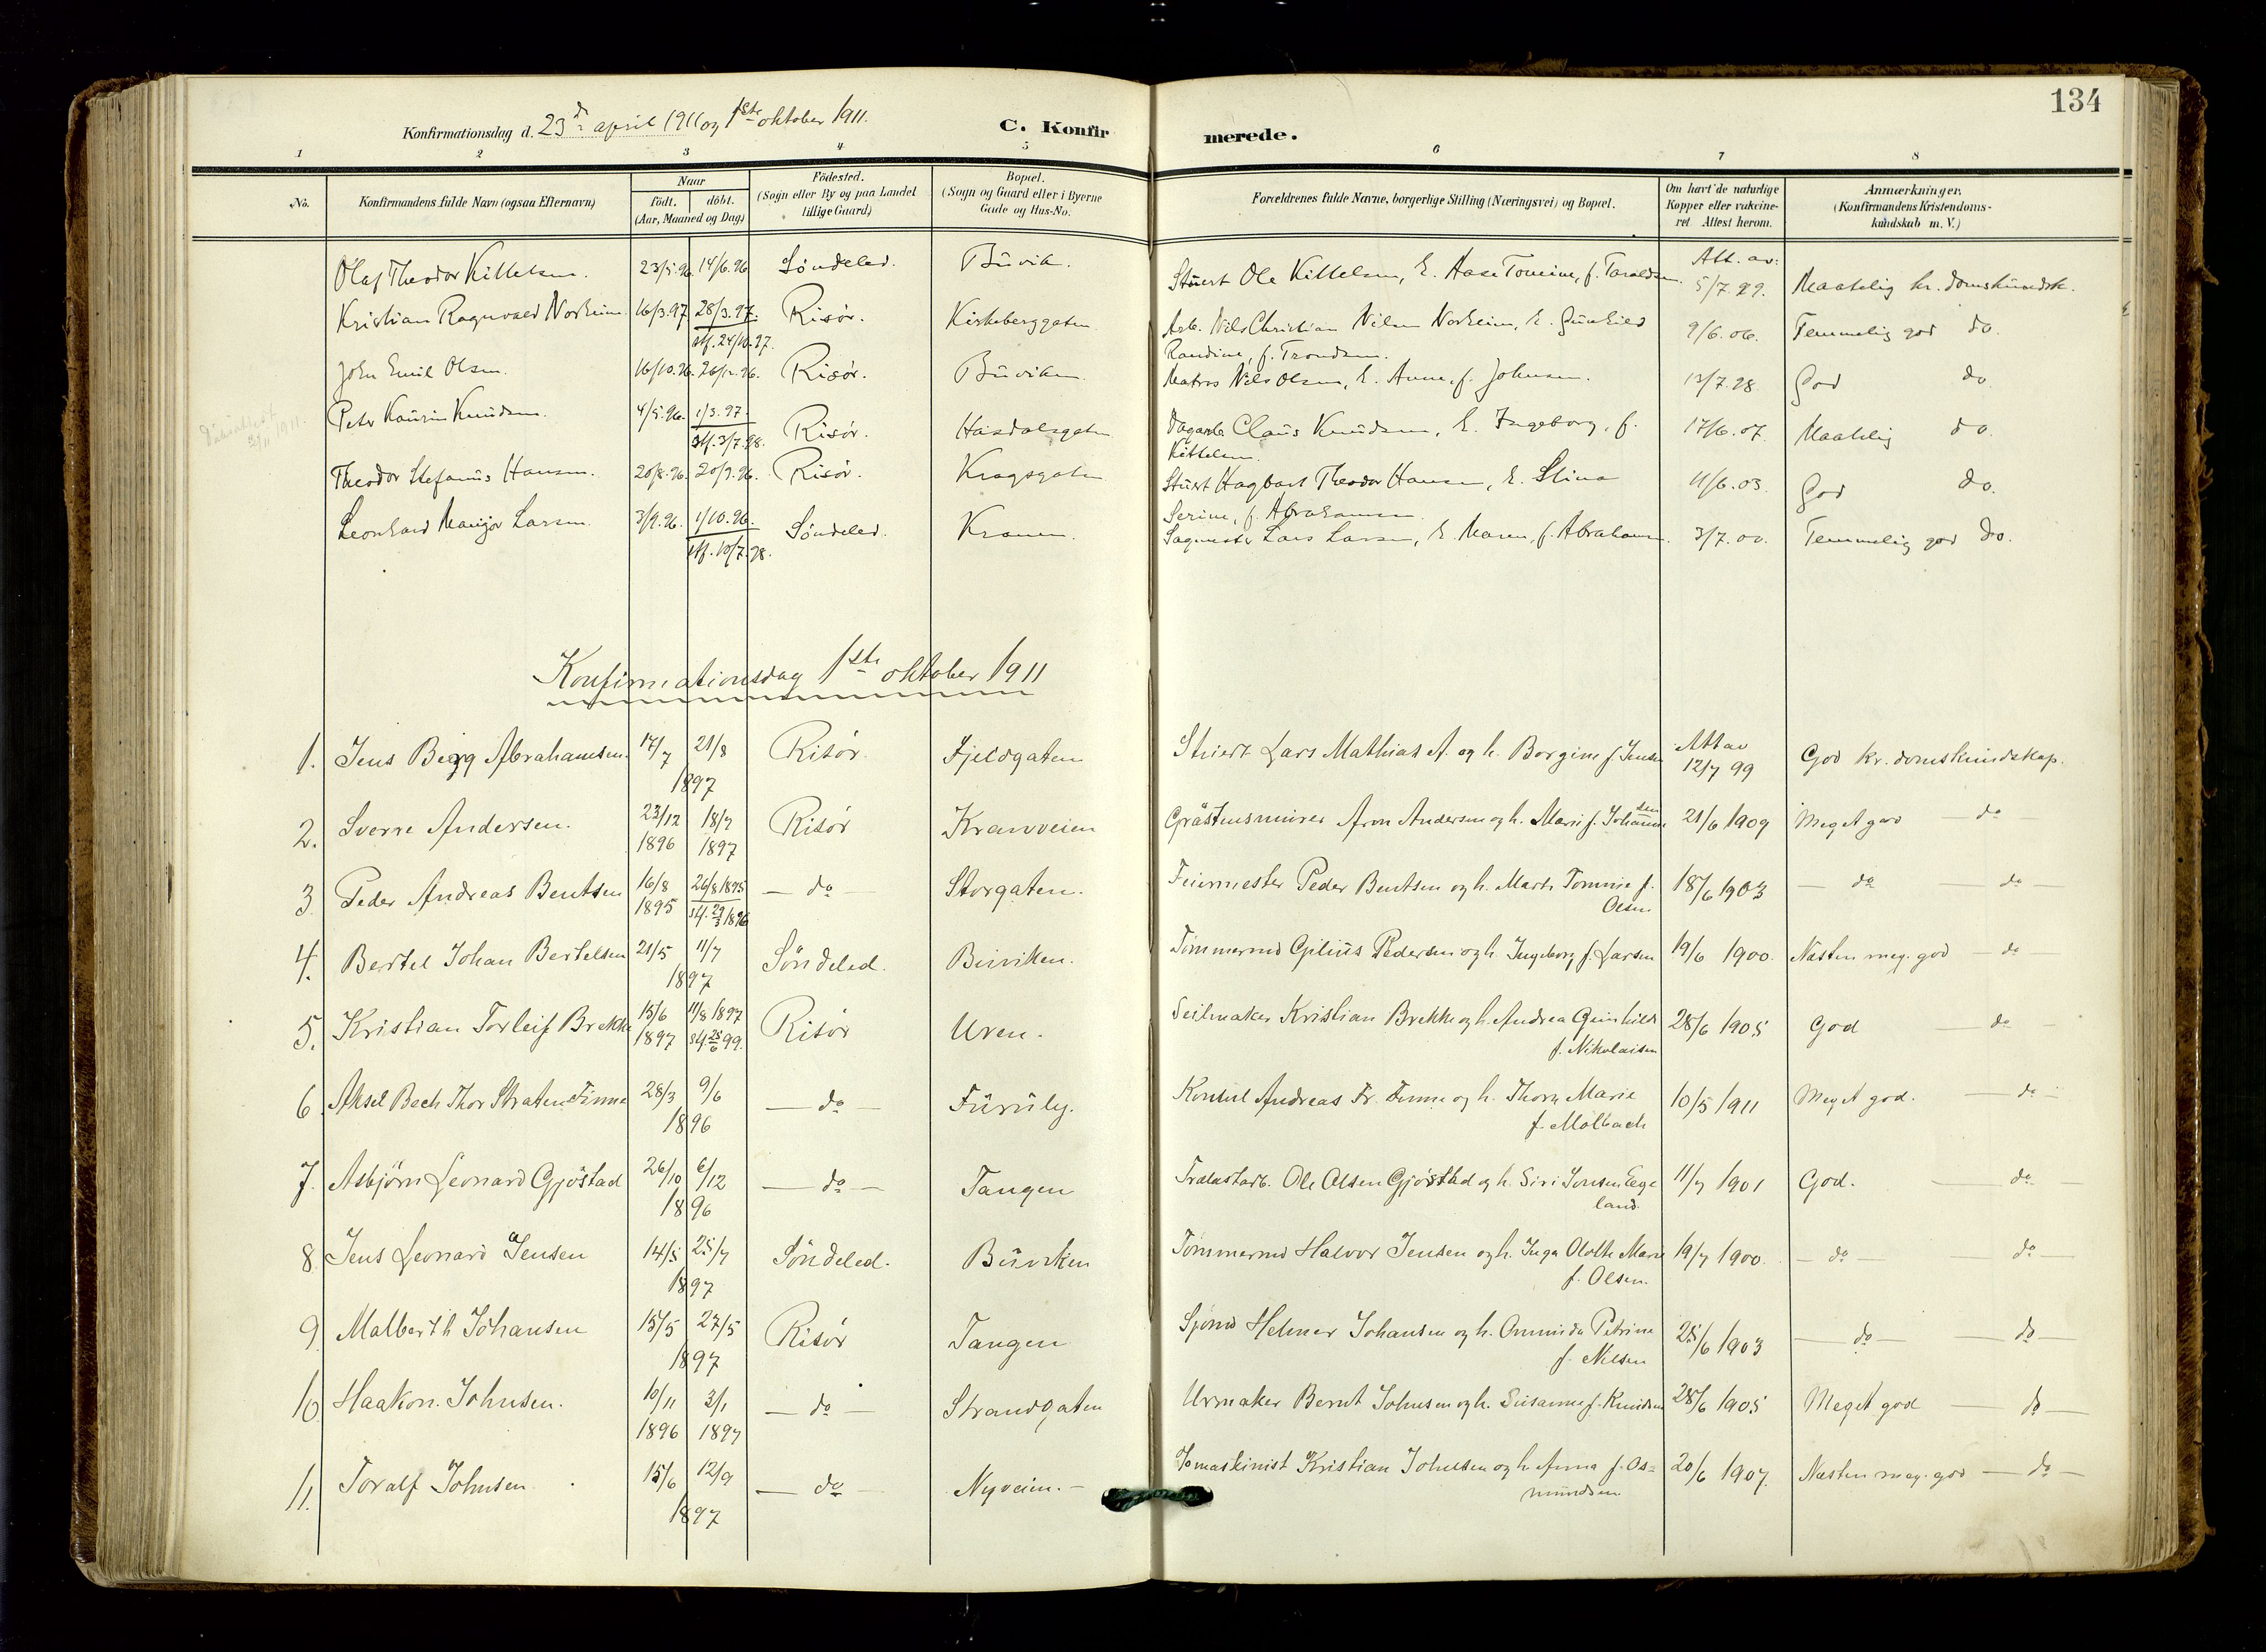 134
Konfirmationsdag d. 23de april 1911 og 1ste oktober 1911. C. Konfirmerede.
1 2 3 4 5 6 7 8
No. Konfirmandens fulde Navn (ogsaa Efternavn) Naar födt. döbt. (Aar, Maaned og Dag) Födested. (Sogn eller By og paa Landet tillige Gaard) Bopæl. (Sogn og Gaard eller i Byerne Gade og Hus-No. Forældrenes fulde Navne, borgerlige Stilling (Næringsvei) og Bopæl. Om havt de naturlige Kopper eller vakcineret Attest herom. Anmærkninger. (Konfirmandens Kristendomskundskab m. V.)
Olaf Theodor Kittelsen. 23/5.96. 14/6.96 Söndeled. Buvik. Stuert Ole Kittelsen, h. Aase Tomine, f. Taraldsen. Att. av: 5/7.99. Maatelig kr.domskundsk.
Kristian Ragnvald Norheim 16/3.97 28/3.97. Risör. Kirkeberggaten Arb. Nils Christian Nilsen Norheim, h. Gunhild 9/6.06. Temmelig god do.
stf. 24/10.97. Randine, f. Trondsen.
John Emil Olsen. 16/10.96. 26/12.96. Risör. Buviken. Matros Nils Olsen, h. Anne, f. Johnsen. 13/7.98 God do
Peter Kaurin Knudsen. 4/5.96. 1/3.97. Risör. Hasdalsgaten Dagarb. Claus Knudsen, h. Ingeborg, f. 17/6.07. Maatelig do.
2/11 1911. stf. 3/7.98. Kittelsen.
Theodor Stefanus Hansen. 20/8.96. 20/9.96. Risör. Kragsgaten Stuert Hagbart Theodor Hansen, h. Stina 11/6.03. God do.
Serine, f. Abrahamsen
Leonhard Marijor Larsen. 3/9.96. 1/10.96. Söndeled. Kranen. Sagmester Lars Larsen, h. Maren, f. Abrahamsen. 3/7.00. Temmelig god do.
stf. 10/7.98.
Konfirmationsdag 1ste oktober 1911
1. Jens Begg Abrahamsen. 17/7 21/8 Risör Fjeldgaten Stuert Lars Mathias A. og h. Borgine f. Jensen Att av 12/7 99 God kr.domskundskap.
1897
2. Sverre Andersen. 23/12 1896 18/7 1897 Risör Kranveien Gråstensmurer Aron Andersen og h. Marie f. Johannesen 21/6 1909 Meget god — do —
3. Peder Andreas Bentsen 16/8 1895 26/8 1895 stf. 29/3 1896 — do — Storgaten. Feiermester Peder Bentsen og h. Marte Tomine f. 18/6 1903 — do — do
Olsen
4. Bertel Johan Bertelsen 21/5 11/7 Söndeled. Buviken. Tömmermd Gilius Pedersen og h. Ingeborg f. Larsen 19/6 1900. Næsten meg. god — do —
1897
5. Kristian Torleif Brekke 15/6 1897 11/8 1897 stf. 25/6 99. Risör Uren. Seilmaker Kristian Brekke og h. Andrea Gunhilde 28/6 1905 God — do —
f. Nikolaisen
6. Aksel Bech Thor Straten Finne 28/3 9/6 — do — Furuly. Konsul Andreas Fr. Finne og h. Thora Marie 10/5 1911 Meget god. — do —
1896 f. Molbach
7. Asbjörn Leonard Gjöstad 26/10 6/12 — do — Tangen Trælastarb. Ole Olsen Gjöstad og h. Siri Jonsen Ege 11/7 1901 God. — do —
1896 land.
8. Jens Leonard Jensen 14/5 25/7 Söndeled. Buviken Tömmermd Halvor Jensen og h. Inga Olette Marie 19/7 1900. — do — — do —
1897 f. Olsen.
9. Malberth Johansen 15/5 27/5 Risör Tangen Sjömd Helmer Johansen og h. Omminda Petrine 25/6 1903 — do — — do —
1897 f. Nilsen
10. Haakon Johnsen. 10/11 1896 3/1 1897 — do — Strandgaten Urmaker Bernt Johnsen og h. Susanne f. Knudsen 28/6 1905 Meget god — do —
11. Toralf Johnsen 15/6 12/9 — do — Nyveien. Somaskinist Kristian Johnsen og h. Anna f. Os= 20/6 1907. Næsten meg. god — do —
1897 mundsen